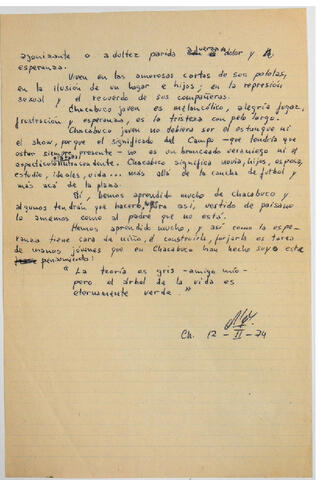 agonizante o adultez parida a fuerza de dolor y
esperanza.
Viven en las amorosas cartas de sus pololas,
en la ilusión de un hogar e hijos; en la represión
sexual y el recuerdo de sus compañeras.
Chacabuco joven es melancólico, alegría fugaz,
frustración y esperanza, es la tristeza con pelo largo.
Chacabuco joven no debiera ser el estanque ni
el show, porque el significado del Campo -que tendría que
estar siempre presente- no es un bronceado veraniego ni el
espectáculo intrascendente. Chacabuco significa novia, hijos, esposa,
estudio, ideales, vida... más allá de la cancha de futbol y
más acá de la plana.
Sí, hemos aprendido mucho de Chacabuco y
algunos tendrán que hacerlo para así, vestido de paisano
lo amemos como al padre que no está.
Hemos aprendido mucho, y así como la espe-
ranza tiene cara de niño, el construirla, forjarla es tarea
de manos jóvenes que en Chacabuco han hecho suyo este
pensamiento:
"La teoría es gris -amigo mío-
pero el árbol de la vida es
eternamente verde."
Ch. 12 - II - 74